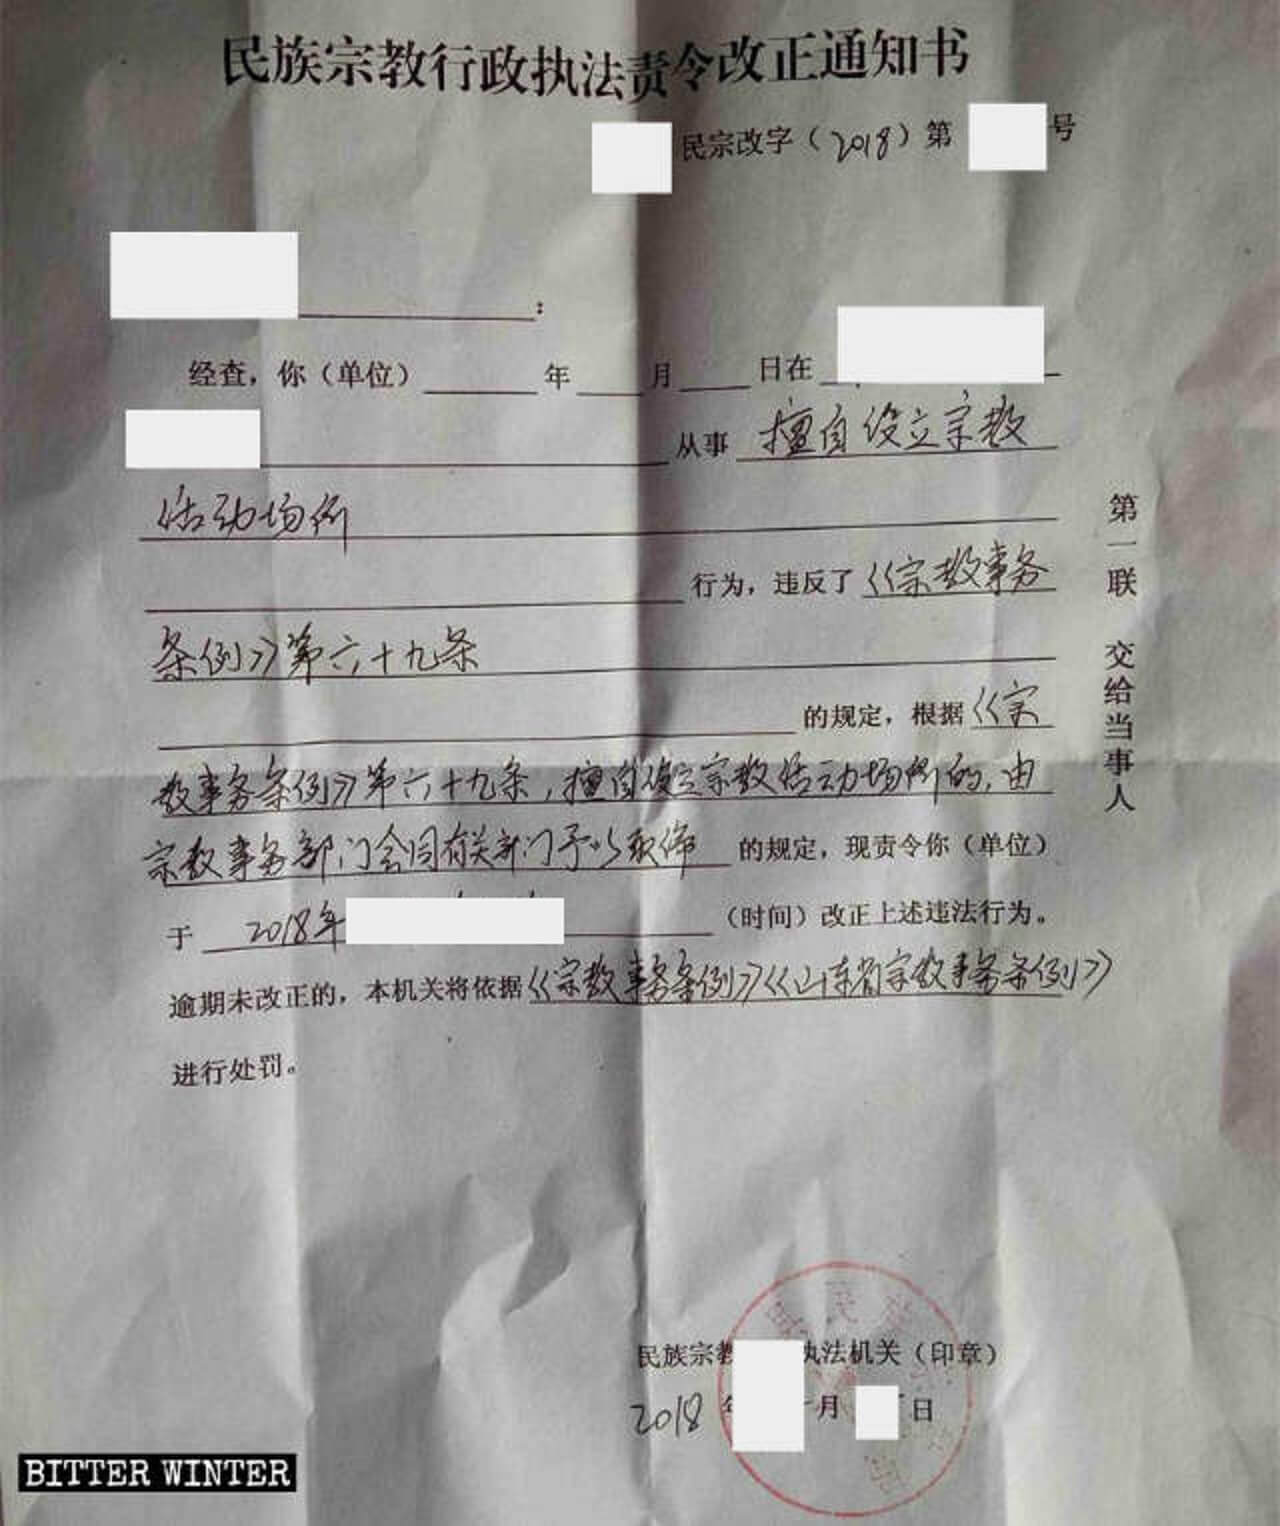 民族宗教行政执法责令改正通知书
民宗改字（2018）第 号
：
经查，你（单位） 年 月 日在
从事 擅自设立宗教
活动场所
行为，违反了《宗教事务
条例》第六十九条
的规定，根据《宗
教事务条例》第六十九条，擅自设立宗教活动场所的，由
宗教事务部门会同有关部门予以取缔 的规定，现责令你（单位）
于 2018年 （时间）改正上述违法行为。
逾期未改正的，本机关将依据《宗教事务条例》《山东省宗教事务条例》
进行处罚。
第一联 交给当事人
民族宗教 执法机关（印章）
2018 年 月 日
BITTER WINTER